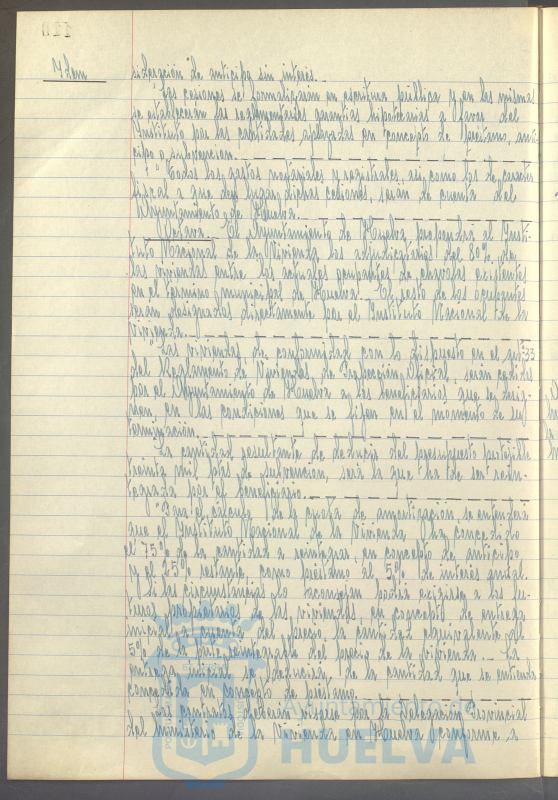 Idem
sideración de anticipo sin interés.
Las cesiones se formalizarán en escritura pública y en las mismas
se establecerán las reglamentarias garantías hipotecarias a favor del
Instituto por las cantidades aplazadas en concepto de préstamo, anti-
cipo o subvención.
Todos los gastos notariales y registrales, así como los de carácter
fiscal a que den lugar dichas cesiones, serán de cuenta del
Ayuntamiento de Huelva.
Octava. El Ayuntamiento de Huelva propondrá al Insti-
tuto Nacional de la Vivienda los adjudicatarios del 80% de
las viviendas entre los actuales ocupantes de chavolas existentes
en el término municipal de Huelva. El resto de los ocupantes
serán designados directamente por el Instituto Nacional de la
Vivienda.
Las viviendas, de conformidad con lo dispuesto en el artº 33
del Reglamento de Viviendas de Protección Oficial, serán cedidas
por el Ayuntamiento de Huelva a los beneficiarios que se desig-
nen, en las condiciones que se fijen en el momento de su
terminación.
La cantidad resultante de deducir del presupuesto protegible
treinta mil ptas de subvención, será la que ha de ser rein-
tegrada por el beneficiario.
Para el cálculo de la cuota de amortización, se entenderá
que el Instituto Nacional de la Vivienda ha concedido
el 75% de la cantidad a reintegrar, en concepto de anticipo
y el 25% restante, como préstamo al 5% de interés anual.
Y si las circunstancias lo aconsejan podrá exigirse a los fu-
turos propietarios de las viviendas, en concepto de entrada
inicial a cuenta del precio, la cantidad equivalente al
5% de la parte reintegrable del precio de la vivienda. La
entrega inicial se deducirá de la cantidad que se entienda
concedida en concepto de préstamo.
Los contratos deberán visarse por la Delegación Provincial
del Ministerio de la Vivienda en Huelva conforme a
Ayuntamiento de
HUELVA